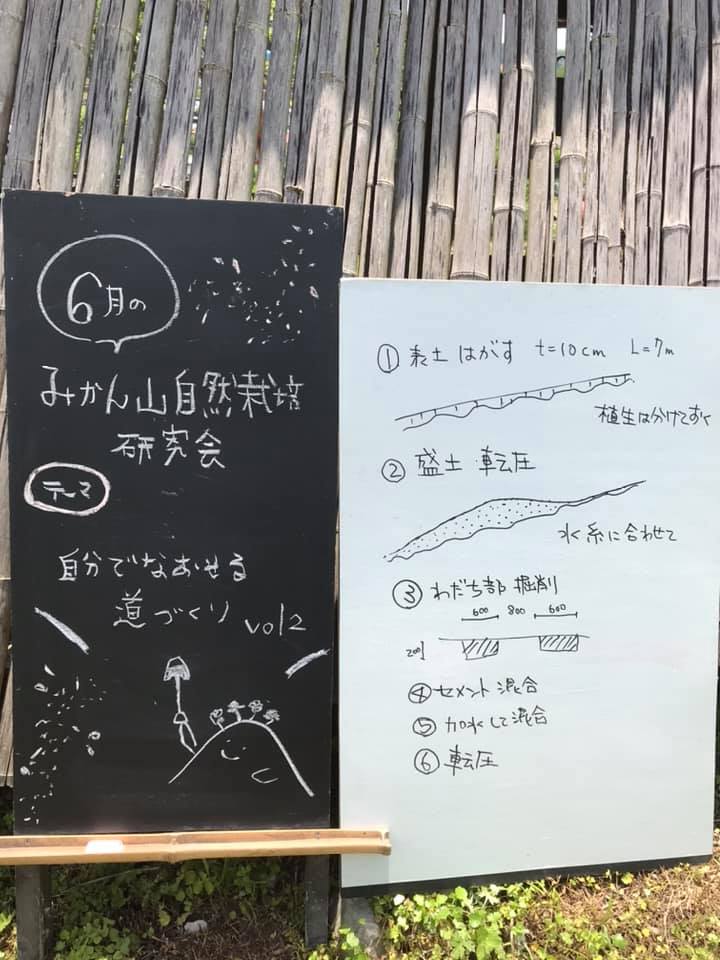 6月の
みかん山自然栽培
研究会
テーマ
自分でなおせる
道づくり vol2
① 表土はがす t=10cm L=7m
植生は分けておく
② 盛土 転圧
水糸に合わせて
③ わだち部 掘削
600 800 600
200
④ セメント混合
⑤ 加水して混合
⑥ 転圧